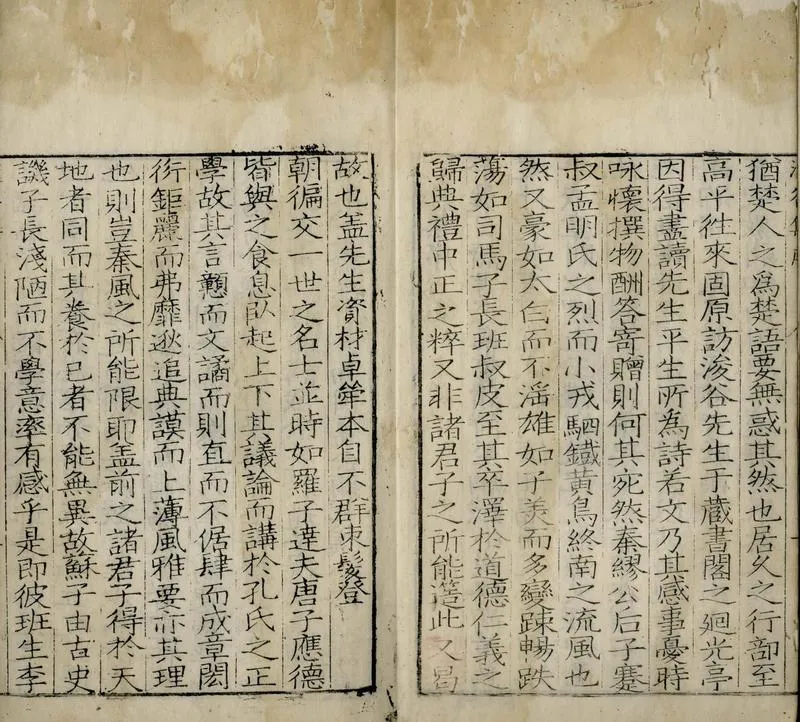 猶楚人之為楚語要無惑其然也居久之行部至
高平徃來固原訪浚谷先生于蔵書閣之廻光亭
因得盡讀先生平生所為詩若文乃其感事憂時
咏懷撰物酬答寄贈則何其宛然秦繆公后子蹇
叔孟明氏之烈而小戎駟鐵黃鳥終南之流風也
然又豪如太白而不滛雄如子美而多變踈暢跌
蕩如司馬子長班叔皮至其卒澤於道德仁義之
歸典禮中正之粹又非諸君子之所能蓋此又曷
故也盖先生資材卓犖本自不群束髮登
朝徧交一世之名士並時如羅子達夫唐子應德
皆與之食息臥起上下其議論而講於孔氏之正
學故其言懇而文譎而則直而不倨肆而成章閎
衍鉅麗而弗靡逖追典謨而上薄風雅要亦其理
也則豈秦風之所能限耶盖前之諸君子得於天
地者同而其養於己者不能無異故蘇子由古史
譏子長淺陋而不學意率有感乎是即彼班生李